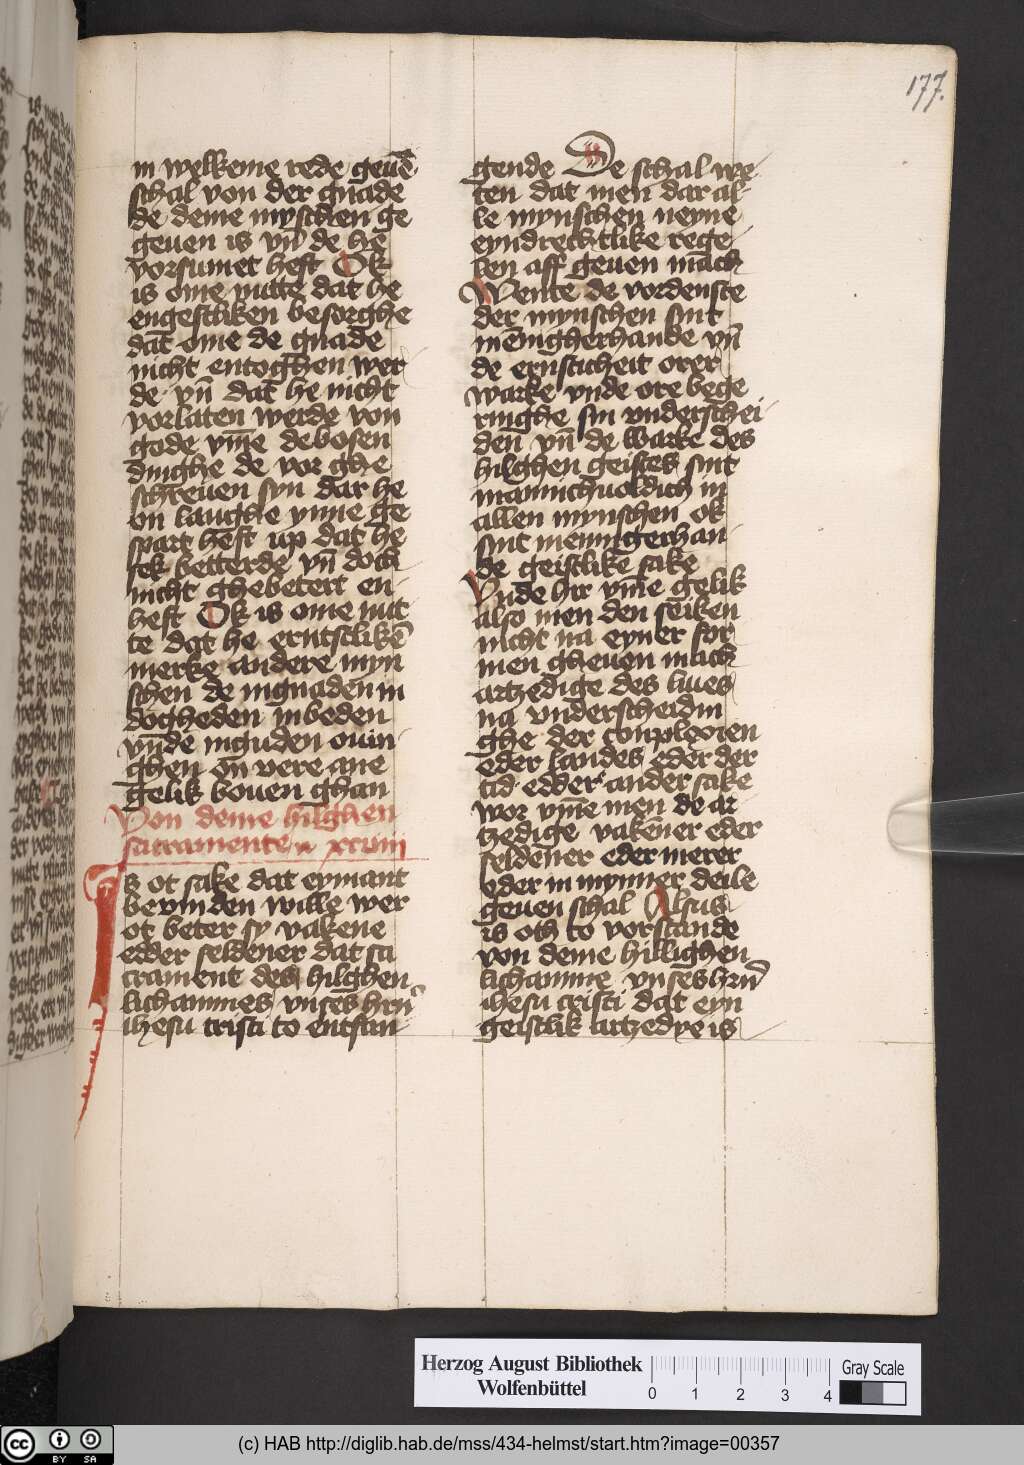 177.
in welkeme rede geuē
schal von der gnade
de deme mynschen ge
geuen is vn̄ de he
vorsumet heft Ok
is ome nutte dat he
engestliken besorghe
dat ome de gnade
nicht entoghen wer
de vn̄ dat he nicht
vorlaten werde von
gode vm̄e de bosen
dinghe de vor ghe
schreuen syn dar he
on laughe ynne ge
spart heft up dat he
sek betterde vn̄ doch
nicht ghebetert en
heft Ok is ome nut
te dat he erntstlikē
merke andere myn
schen de ingnaden in
dogheden inbeden
vn̄de inguden ouin
ghen on vere ane
gelik bouen ghan
Von deme hilghen
sacramente xcviii
Is ot sake dat eymant
bevinden wille wer
ot beter sy vakene
edder seldener dat sa
crament des hilghen
lichammes vnses hrn̄
ihesu cristi to entfan
gende De schal we
ten dat men dar al
le mynschen neyne
eyndrechtlike rege
len aff geuen mach
Wente de vordenste
der mynschen sint
mēnigherhande vn̄
de ernsticheit orer
warke vnde ore bege
ringhe sin vnderschei
den vn̄ de warke des
hilghen geistes sint
mannichuoldich in
allen mynschen ok
sint mennigerhan
de geistlike sake
Vnde hir vm̄e gelik
also men den seiken
nicht na eyner for
men gheuen mach
artzedige des liues
na vnderscheidin
ghe der complexien
eder landes eder der
tid edder ander sake
wor vm̄e men de ar
tzedige vakener eder
seldener eder merer
eder in mynner deile
geuen schal Alsus
is oth to vorstande
von deme hillighen
lichamme vnses hrn̄
ihesu cristi dat eyn
geistlik artzedye is
Herzog August Bibliothek
Wolfenbüttel
0 1 2 3 4
Gray Scale
cc BY SA
(c) HAB http://diglib.hab.de/mss/434-helmst/start.htm?image=00357